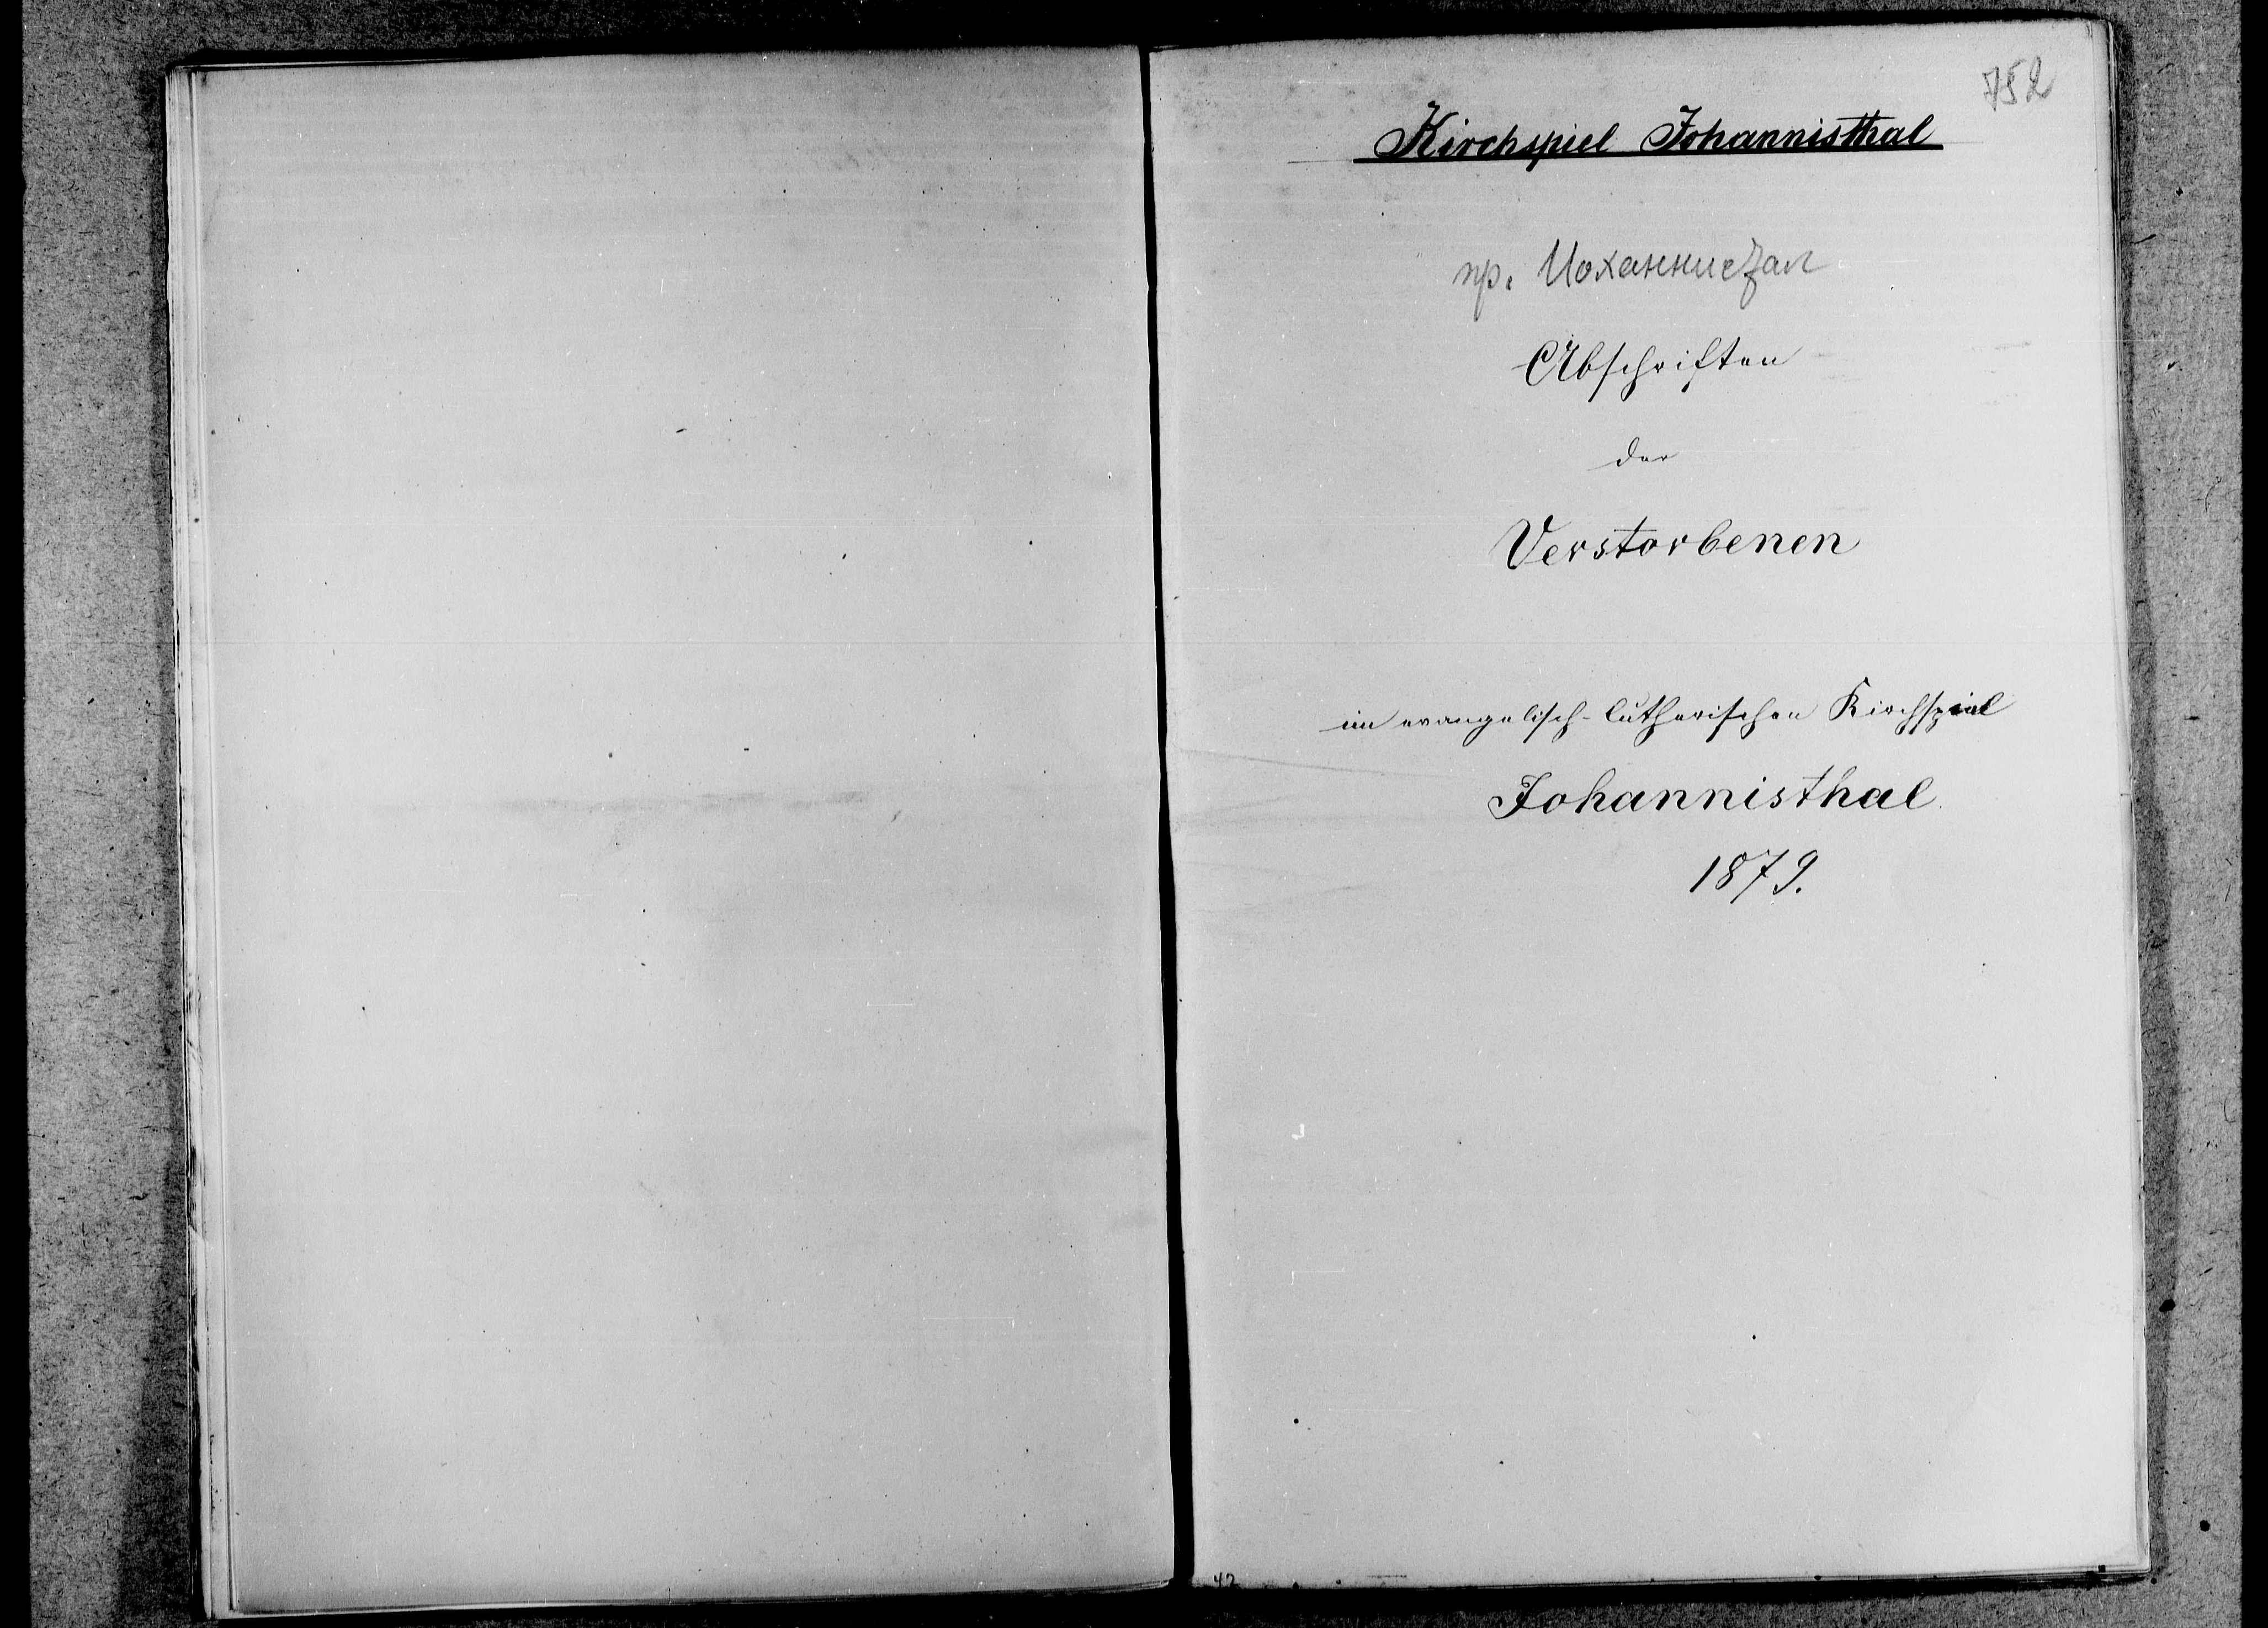 752
Kirchspiel Johannisthal
пр. Иоханнистал
Abschriften
der
Verstorbenen
im evangelisch-lutherischen Kirchspiel
Johannisthal
1879.
42